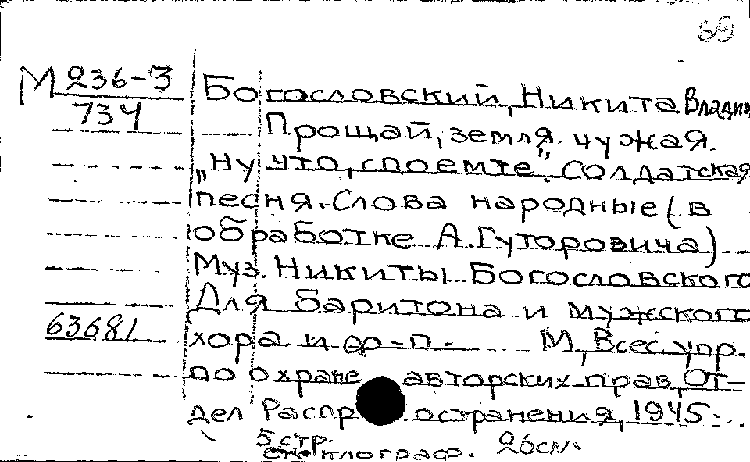 69
М 236-3
734
Богословский, Никита Владим
Прощай, земля чужая.
„Ну что, споемте". Солдатская
песня. Слова народные (в
обработке А. Гуторовича)
Муз. Никиты Богословского
Для баритона и мужского
63681
хора и ф-п. М, Всес. упр.
по охране авторских прав, От-
дел Распространения, 1945.
5 стр. 26 см.
стеклограф.